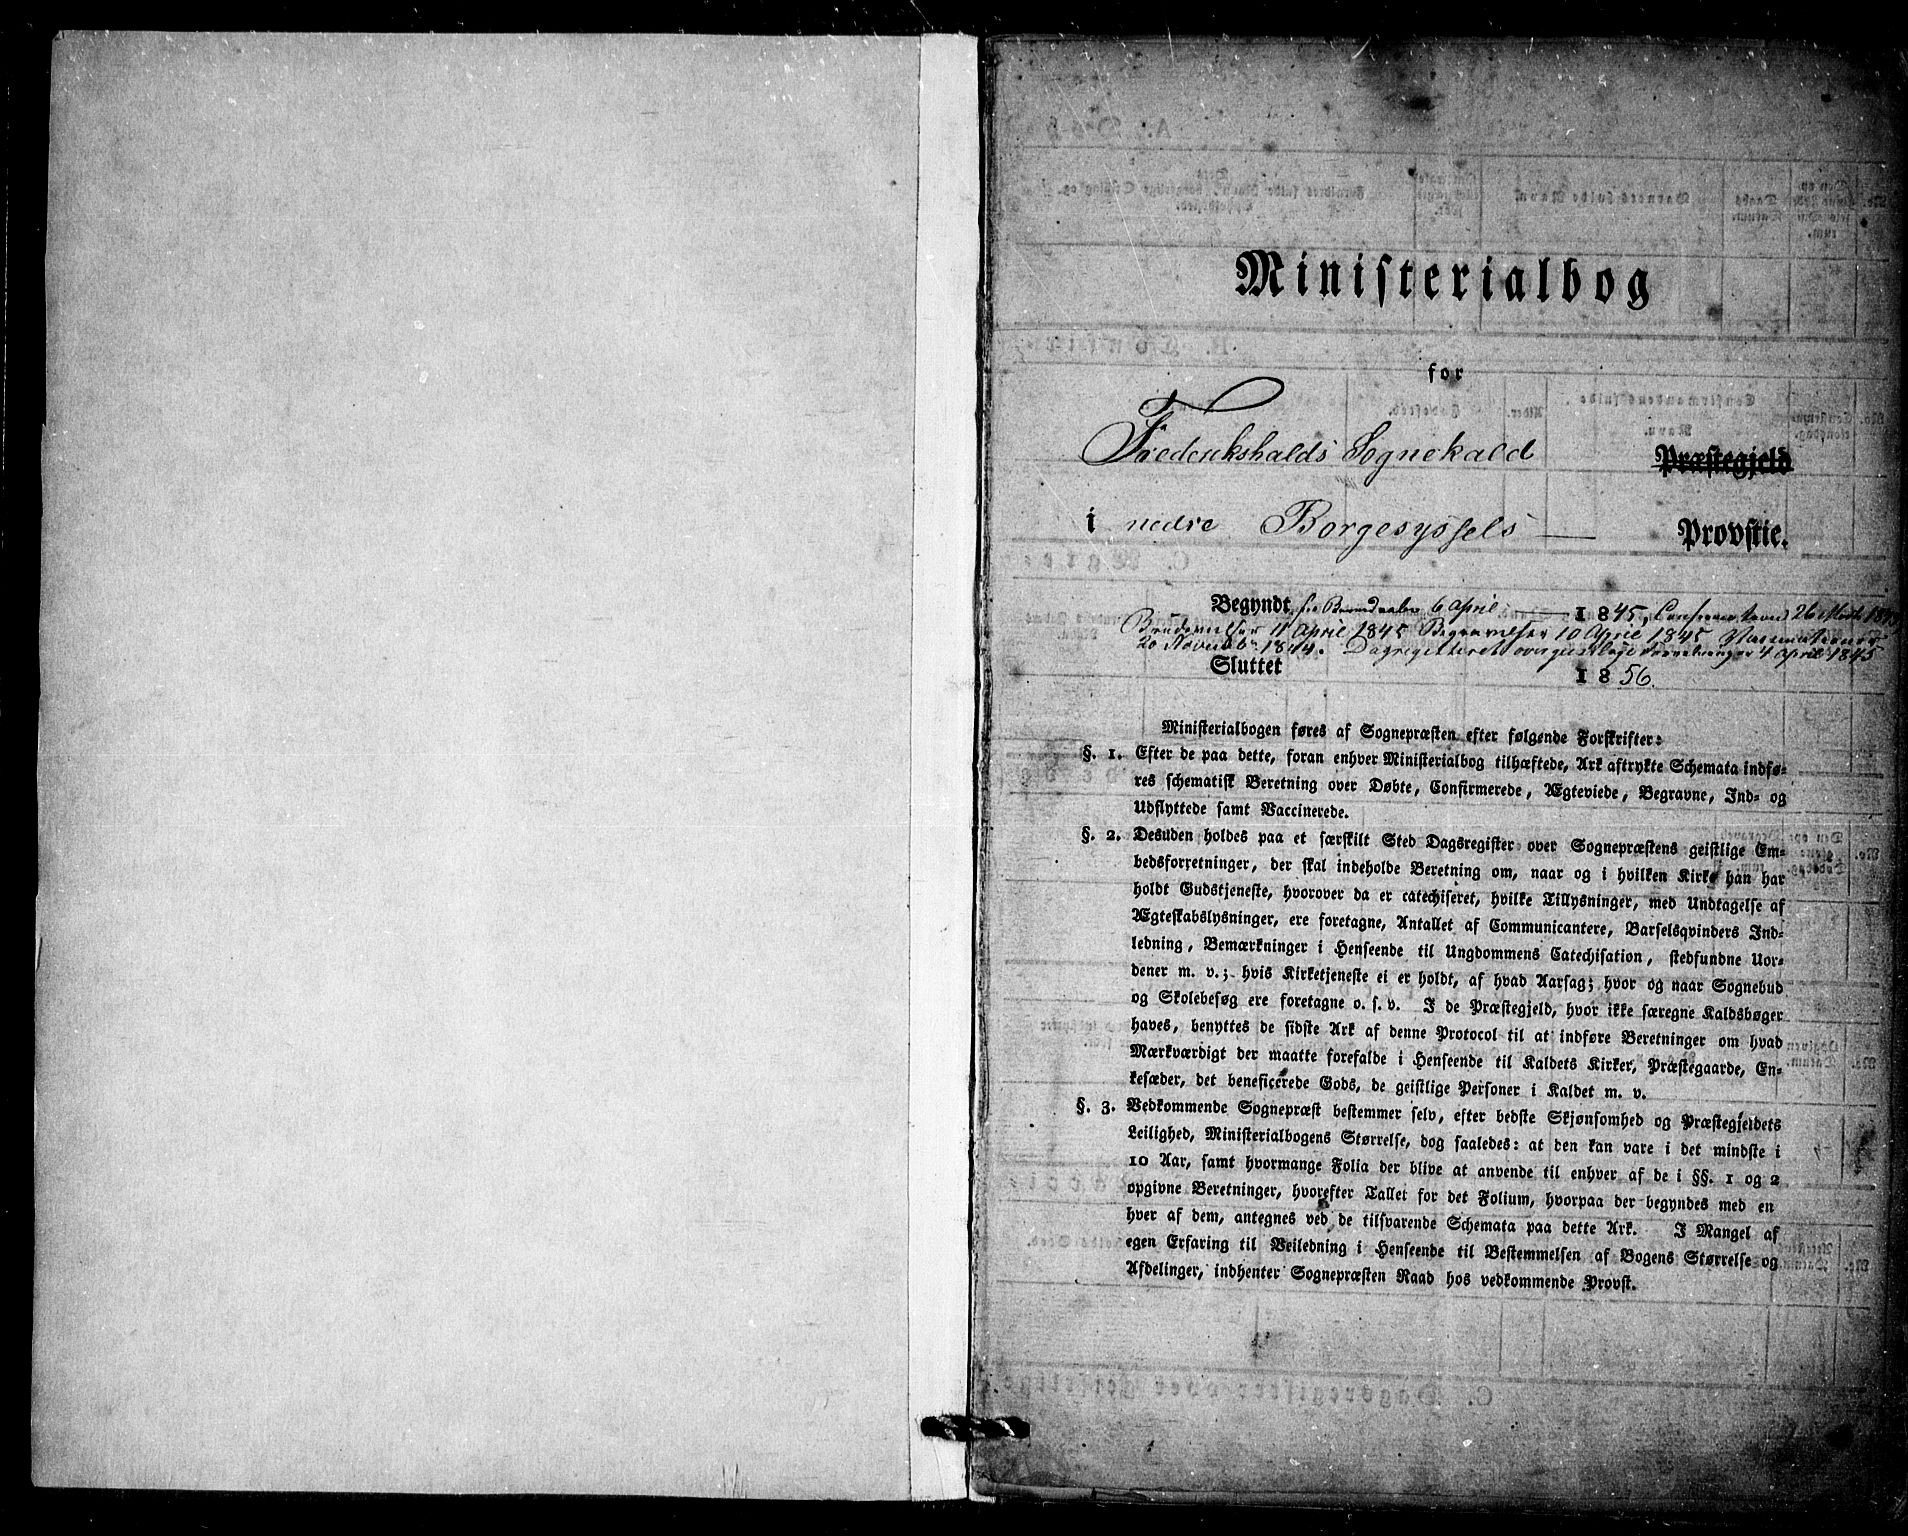 Ministerialbog
for
Frederikshalds Sognekald Præstegjeld
i nedre Borgesyssels Provstie.
Begyndt for Barnedaaben 6 April 1845, Confirmationen 26
Brudevielser 11 April 1845 Begravelser 10 April 1845 Vaccinationer
20 Novemb. 1844. Dagregisteret over geistlige Forretninger 4 April 1845
Sluttet 1856.
Ministerialbogen føres af Sognepræsten efter følgende Forskrifter:
§. 1. Efter de paa dette, foran enhver Ministerialbog tilhæftede, Ark aftrykte Schemata indfø=
res schematisk Beretning over Døbte, Confirmerede, Ægteviede, Begravne, Ind= og
Udflyttede samt Vaccinerede.
§. 2. Desuden holdes paa et særskilt Sted Dagsregister over Sognepræstens geistlige Em=
bedsforretninger, der skal indeholde Beretning om, naar og i hvilken Kirke han har
holdt Gudstjeneste, hvorover da er catechiseret, hvilke Tillysninger, med Undtagelse af
Ægteskabslysninger, ere foretagne, Antallet af Communicantere, Barselqvinders Ind=
ledning, Bemærkninger i Henseende til Ungdommens Catechisation, stedfundne Uor=
dener m. v.; hvis Kirketjeneste ei er holdt, af hvad Aarsag; hvor og naar Sognebud
og Skolebesøg ere foretagne o. s. v. I de Præstegjeld, hvor ikke særegne Kaldsbøger
haves, benyttes de sidste Ark af denne Protocol til at indføre Beretninger om hvad
Mærkværdigt der maatte forefalde i Henseende til Kaldets Kirker, Præstegaarde, En=
kesæder, det beneficerede Gods, de geistlige Personer i Kaldet m. v.
§. 3. Vedkommende Sognepræst bestemmer selv, efter bedste Skjønsomhed og Præstegjeldets
Leilighed, Ministerialbogens Størrelse, dog saaledes: at den kan vare i det mindste i
10 Aar, samt hvormange Folia der blive at anvende til enhver af de i §§. 1 og 2
opgivne Beretninger, hvorefter Tallet for det Folium, hvorpaa der begyndes med en
hver af dem, antegnes ved de tilsvarende Schemata paa dette Ark. I Mangel af
egen Erfaring til Veiledning i Henseende til Bestemmelsen af Bogens Størrelse og
Afdelinger, indhenter Sognepræsten Raad hos vedkommende Provst.